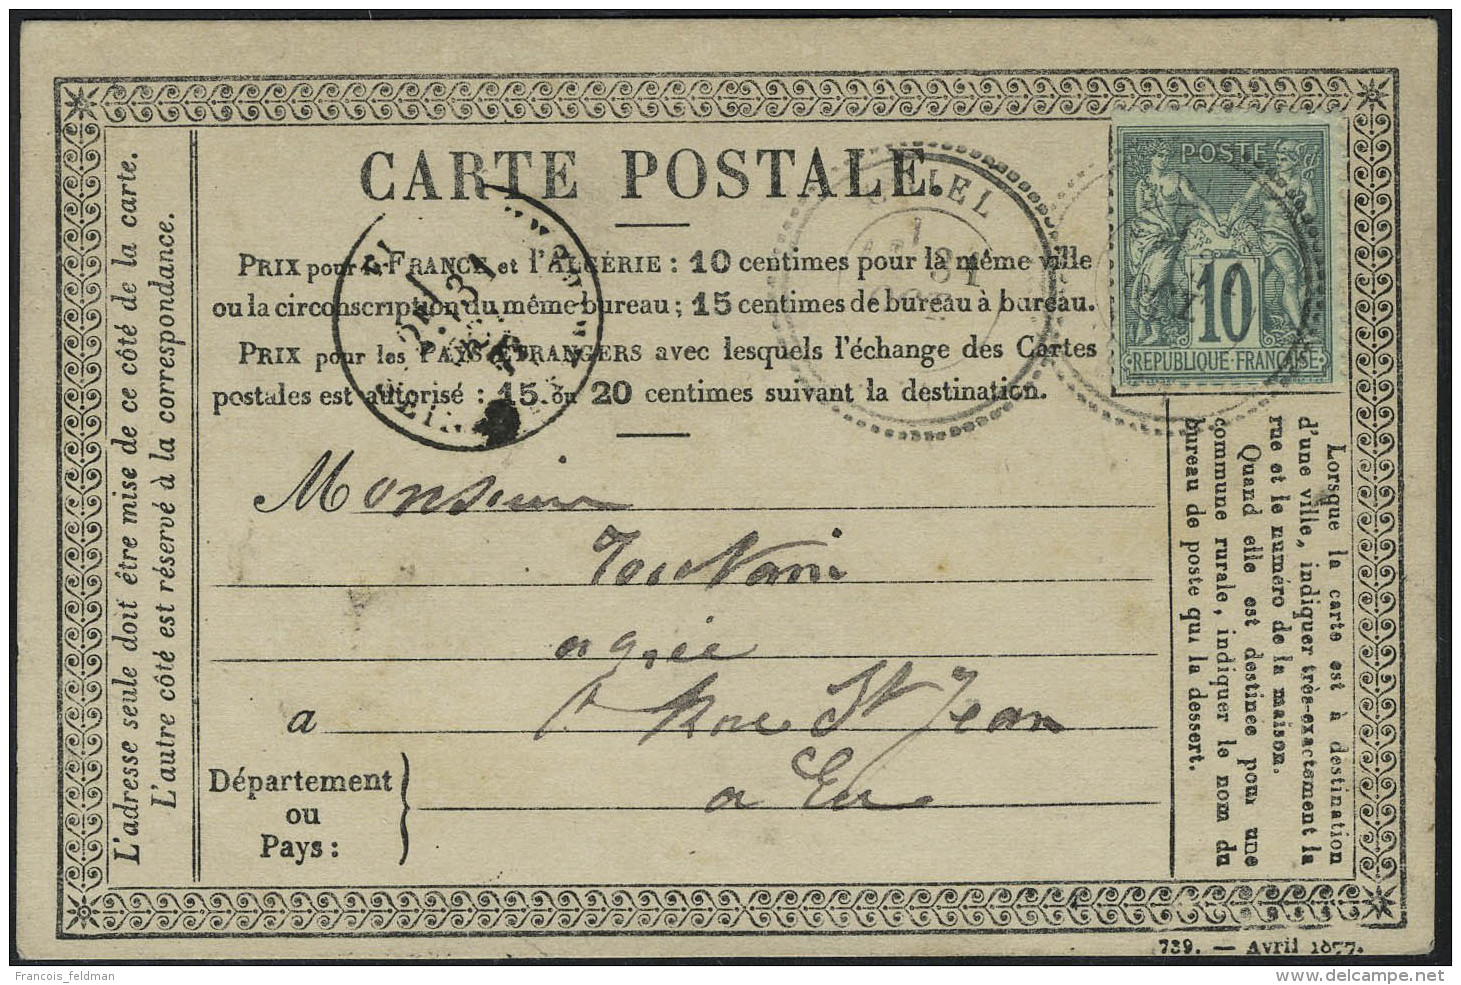 CARTE POSTALE.
PRIX pour la FRANCE et l'ALGÉRIE : 10 centimes pour la même ville
ou la circonscription du même bureau ; 15 centimes de bureau à bureau.
PRIX pour les PAYS ÉTRANGERS avec lesquels l'échange des Cartes
postales est autorisé : 15 ou 20 centimes suivant la destination.
POSTE
10
RÉPUBLIQUE FRANÇAISE
31
L'adresse seule doit être mise de ce côté de la carte.
L'autre côté est réservé à la correspondance.
Monsieur
agréé
a
Rue St Jean
Département
ou
Pays :
a Eu
Lorsque la carte est à destination
d'une ville, indiquer très-exactement la
rue et le numéro de la maison.
Quand elle est destinée pour une
commune rurale, indiquer le nom du
bureau de poste qui la dessert.
739. — Avril 1877.
Francois_feldman
delcampe.net